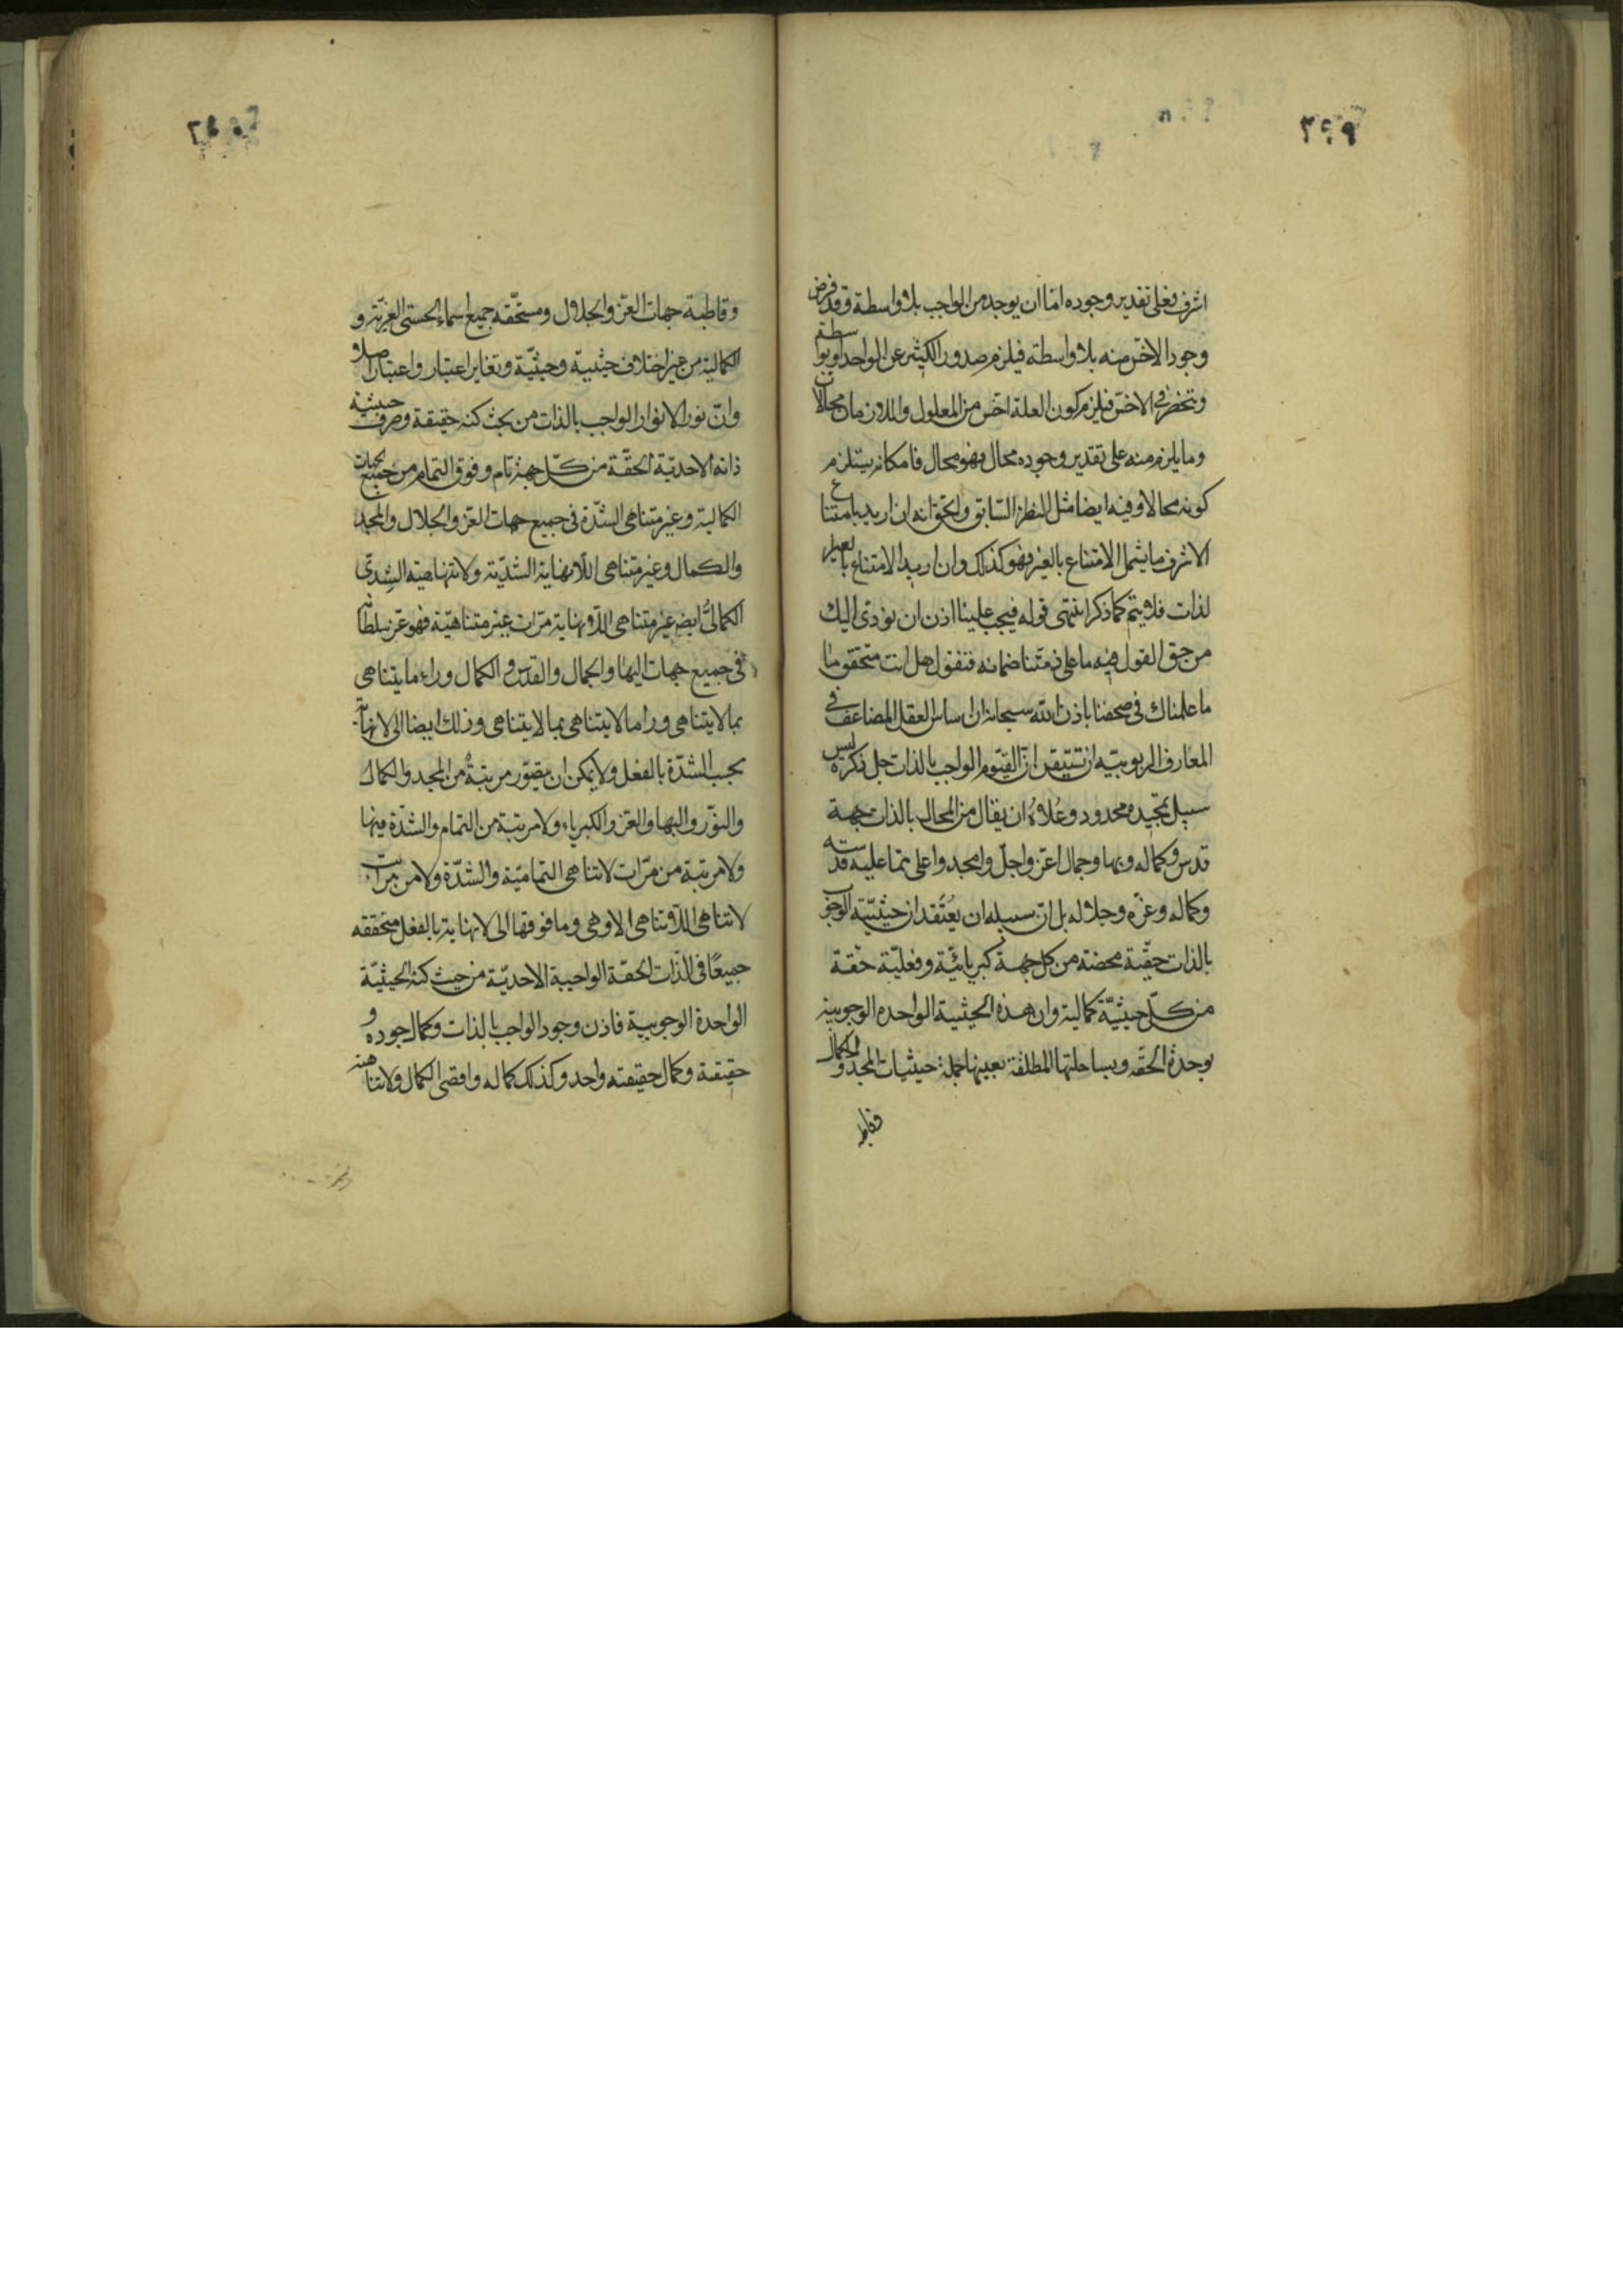 ٣٤٩
اشرف فعلى تقدير وجوده اما ان يوجد من الواجب بلا واسطة وقد فرض
وجود الاخس منه بلا واسطة فيلزم صدور الكثير عن الواحد او بواسطة
وينحصر فى الاخس فيلزم كون العلة اخس من المعلول واللازمان محالان
وما يلزم منه على تقدير وجوده محال فهو محال فامكانه يستلزم
كونه محالا وفيه ايضا مثل النظر السابق والحق انه ان اريد بامتناع
الاشرف ما يشمل الامتناع بالغير فهو كذلك وان اريد الامتناع بالغير
لذات فلا يتم كما ذكر انتهى قوله فيجب علينا اذن ان نودى اليك
من حق القول فيه ما على ذمتنا ضمانه فنقول هل انت متحقق وما
ما علمناك فى صحفنا باذن الله سبحانه ان اساس العقل المضاعف فى
المعارف الربوبيه ان تتيقن ان القيوم الواجب بالذات جل ذكره ليس
سبيل تمجيده محدود وعلاه ان يقال من المحال بالذات جهة
قدس وكماله وبها وجمال اعز واجل وامجد واعلى مما عليه قدسه
وكماله وعزه وجلاله بل ان سبيله ان يعتقد ان حيثية الوجوب
بالذات حقية محضة من كل جهة كبريائية وفعلية حقة
من كل حيثية كمالية وان هذه الحيثية الواحده الوجوبية
بوحدة الحقه وبساحلتها المطلقة بعينها جملة حيثيات المجد والكمال
وقاطبة
وقاطبة جهات العز والجلال ومستحقه جميع اسماء الحسنى العزية و
الكمالية من غير اختلاف حيثية وحيثية وتغاير اعتبار واعتبار اصلا و
وان نور الانوار الواجب بالذات من بحث كنه حقيقة وصرف حيثية
ذاته الاحدية الحقة من كل جهة تام وفوق التمام من جميع الجهات
الكمالية وغير متناهى الشدة فى جميع جهات العز والجلال والمجد
والكمال وغير متناهى اللانهاية الشدية ولا تناهيته الشدى
الكمالى ايض غير متناهى اللانهاية مرات غير متناهية فهو عز سلطانه
فى جميع جهات البها والجمال والقدس والكمال وراء ما يتناهى
بما لا يتناهى ورا ما لا يتناهى بما لا يتناهى وذلك ايضا الى لا نهاية
بحسب الشدة بالفعل ولا يمكن ان يتصور مرتبة من المجد والكمال
والنور والبها والعز والكبرياء ولا مرتبة من التمام والشدة فيها
ولا مرتبة من مرات لا تناهى التمامية والشدة ولا من مراتب
لا تناهى اللاتناهى الا وهى وما فوقها الى لا نهاية بالفعل متحققه
جميعا فى الذات الحقة الواجبة الاحدية من حيث كنه الحيثية
الواحدة الوجوبية فاذن وجود الواجب بالذات وكمال جوده و
حقيقة وكمال حقيقته واحد وكذلك كماله واقصى الكمال ولا تناهيته